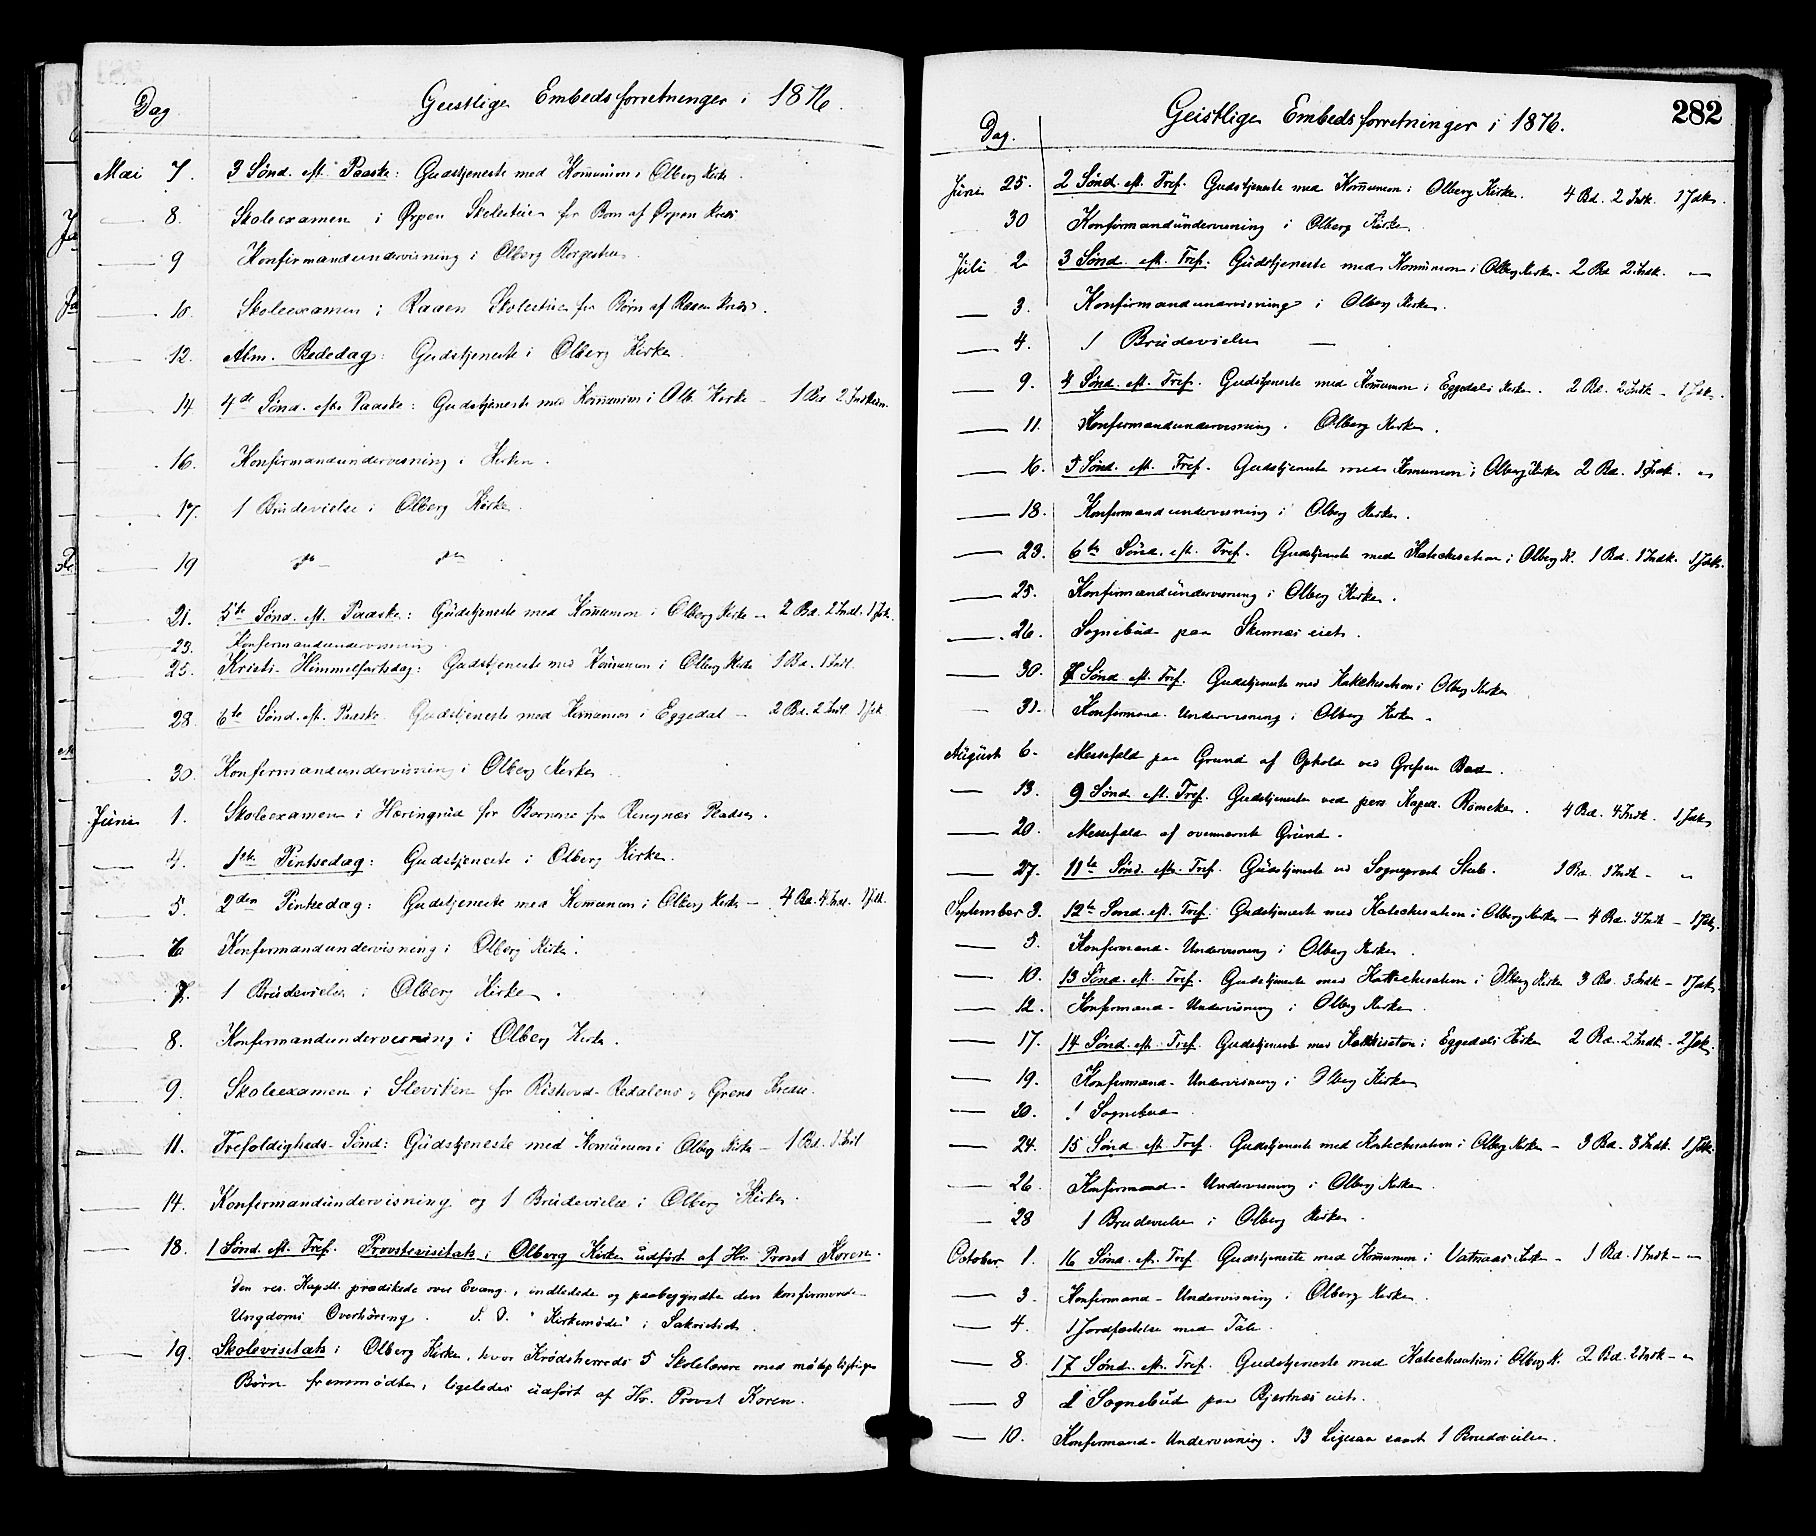 Dag Geistlige Embedsforretninger i 1876.
Mai 7. 3 Sønd. eft. Paaske: Gudstjeneste med Kommunion i Olberg Kirke.
8. Skoleexamen i Ørpen Skolestue for Børn af Ørpen Kreds
9 Konfirmandundervisning i Olberg
10. Skoleexamen i Raaen Skolestue for Børn af Raaen Kreds.
12. Alm. Bededag: Gudstjeneste i Olberg Kirke.
14 4de Sønd. efter Paaske: Gudstjeneste med Kommunion i Olb. Kirke – 1 Bd 2 Indk.
16. Konfirmandundervisning i Kirken.
17. 1 Brudevielse i Olberg Kirke.
19 do – do –
21. 5te Sønd. eft. Paaske: Gudstjeneste med Kommunion i Olberg Kirke – 2 Bd. 2 Indl. 1 Jdk.
23. Konfirmandundervisning.
25. Kristi Himmelfartsdag: Gudstjeneste med Kommunion i Olberg Kirke 1 Bd. 1 Indl.
28. 6te Sønd. eft. Paaske Gudstjeneste med Kommunion i Eggedal – 2 Bd. 2 Indl. 1 Jdk
30. Konfirmandundervisning i Olberg Kirke
Juni 1. Skoleexamen i Haringrud for Børnene fra Rengnæs Pladser.
4. 1ste Pintsedag: Gudstjeneste i Olberg Kirke.
5. 2den Pintsedag: Gudstjeneste med Kommunion i Olberg Kirke – 4 Bd. 4 Indl. 1 Jdk.
6 Konfirmandundervisning i Olberg Kirke.
7. 1 Brudevielse i Olberg Kirke.
8. Konfirmandundervisning i Olberg Kirke.
9. Skoleexamen i Slevikken for Ristvod-Redalens og Grens Kredse.
11. Trefoldigheds-Sønd: Gudstjeneste med Kommunion i Olberg Kirke – 1 Bd. 1 Indl
14. Konfirmandundervisning og 1 Brudevielse i Olberg Kirke.
18. 1 Sønd. eft. Tref. Provstevisitats i Olberg Kirke udført af Hr. Provst Koren.
Den res. Kapell. prædikede over Evang., indledede og paabegyndte den konfirmerede
Ungdoms Overhøring. S. D. "Kirkemøde" i Sakristiet.
19. Skolevisitats i Olberg Kirke, hvor Krødsherreds 5 Skolelærere med
Børn fremmødte, ligeledes udført af Hr. Provst Koren.
282
Dag. Geistlige Embedsforretninger i 1876.
Juni 25. 2 Sønd. eft. Tref. Gudstjeneste med Kommunion i Olberg Kirke. 4 Bd. 2 Indk. 1 Jdk.
30 Konfirmandundervisning i Olberg Kirke
Juli 2 3 Sønd. eft. Tref. Gudstjeneste med Kommunion i Olberg Kirke – 2 Bd 2 Indk. –
3. Konfirmandundervisning i Olberg Kirke.
4. 1 Brudevielse –
9. 4 Sønd. eft. Tref. Gudstjeneste med Kommunion i Eggedals Kirke. 2 Bd. 2 Indk – 1 Jdk.
11. Konfirmandundervisning i Olberg Kirke.
16. 5 Sønd. eft. Tref. Gudstjeneste med Kommunion i Olberg Kirke 2 Bd. 1 Indk. –
18. Konfirmandundervisning i Olberg Kirke.
23. 6te Sønd. eft. Tref. Gudstjeneste med Katechisation i Olberg K. 1 Bd. 1 Indk. 1 Jdk.
25. Konfirmandundervisning i Olberg Kirke.
26. Sognebud paa Skinnes eiet.
30. 7 Sønd. eft. Tref. Gudstjeneste med Katekisation i Olberg Kirke
31. Konfirmand-Undervisning i Olberg Kirke.
August 6. Messefald paa Grund af Ophold ved Grefsen Bad.
13. 9 Sønd. eft. Tref. Gudstjeneste ved pers. Kapell. Rømcke. 4 Bd. 4 Indk. 1 Jdk
20. Messefald af ovennævnte Grund.
27. 11te Sønd. eft. Tref. Gudstjeneste ved Sogneprest Steb. 1 Bd. 1 Indk –
September 3. 12te Sønd. eft. Tref. Gudstjeneste med Katechisation i Olberg Kirke – 4 Bd. 4 Indk – 1 Jdk.
5. Konfirmand-Undervisning i Olberg Kirke.
10. 13 Sønd. eft. Tref. Gudstjeneste med Katechisation i Olberg Kirke 3 Bd. 3 Indk – 1 Jdk.
12. Konfirmand-Undervisning i Olberg Kirke.
17. 14 Sønd. eft. Tref. Gudstjeneste med Katekisation i Eggedals Kirke 2 Bd. 2 Indk – 2 Jdk.
19. Konfirmand-Undervisning i Olberg Kirke
20. 1 Sognebud
24. 15 Sønd. eft. Tref. Gudstjeneste med Katechisation i Olberg Kirke – 3 Bd. 3 Indk. 1 Jdk.
26. Konfirmand-Undervisning i Olberg Kirke.
28 1 Brudevielse i Olberg Kirke.
October 1. 16 Sønd. eft. Tref. Gudstjeneste med Kommunion i Vatnaas Kirke – 1 Bd. 1 Indk –
3. Konfirmand-Undervisning i Olberg Kirke.
4. 1 Jordfæstelse med Tale.
8. 17 Sønd. eft. Tref. Gudstjeneste med Katechisation i Olberg K. 2 Bd. 2 Indk –
8 1 Sognebud paa Bjertnæs eiet.
10. Konfirmand-Undervisning. 13 Ligesaa samt 1 Brudevielse.